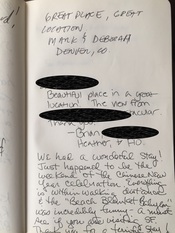 GREAT PLACE, GREAT
LOCATION.
MARK & DEBORAH
DENVER, CO
"Beautiful place in a great
location! The view from
Thank you.
- Brian,
Heather, &
We had a wonderful stay!
Just happened to be the
weekend of the Chinese New
Year Celebration. Everything
is within walking distance
& the "Beach Blanket Babylon"
was incredibly funny, a must
see if you are visiting SF
Thank you for a terrific stay!